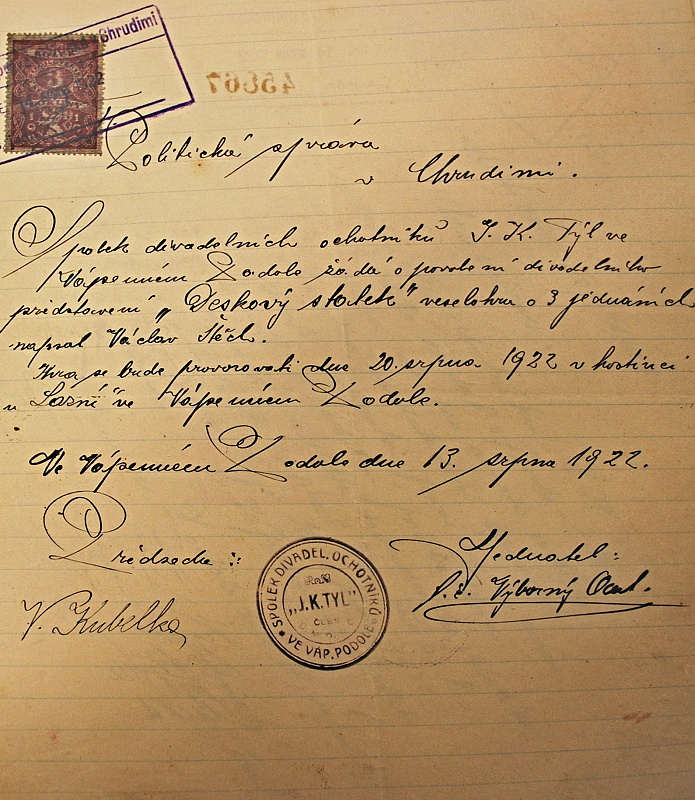 Chrudimi
3
45867
Politická správa
v Chrudimi.
Spolek divadelních ochotníků J. K. Týl ve
Vápenném Podole žádá o povolení divadelního
představení „Deskový statek" veselohra o 3 jednáních
napsal Václav Štěch.
Hra se bude provozovati dne 20. srpna 1922 v hostinci
u Lázní ve Vápenném Podole.
Ve Vápenném Podole dne 13. srpna 1922.
Předseda:
Jednatel:
V. Kubelka
Výborný
SPOLEK DIVADEL. OCHOTNÍKŮ
„J.K.TYL"
VE VÁP. PODOLE